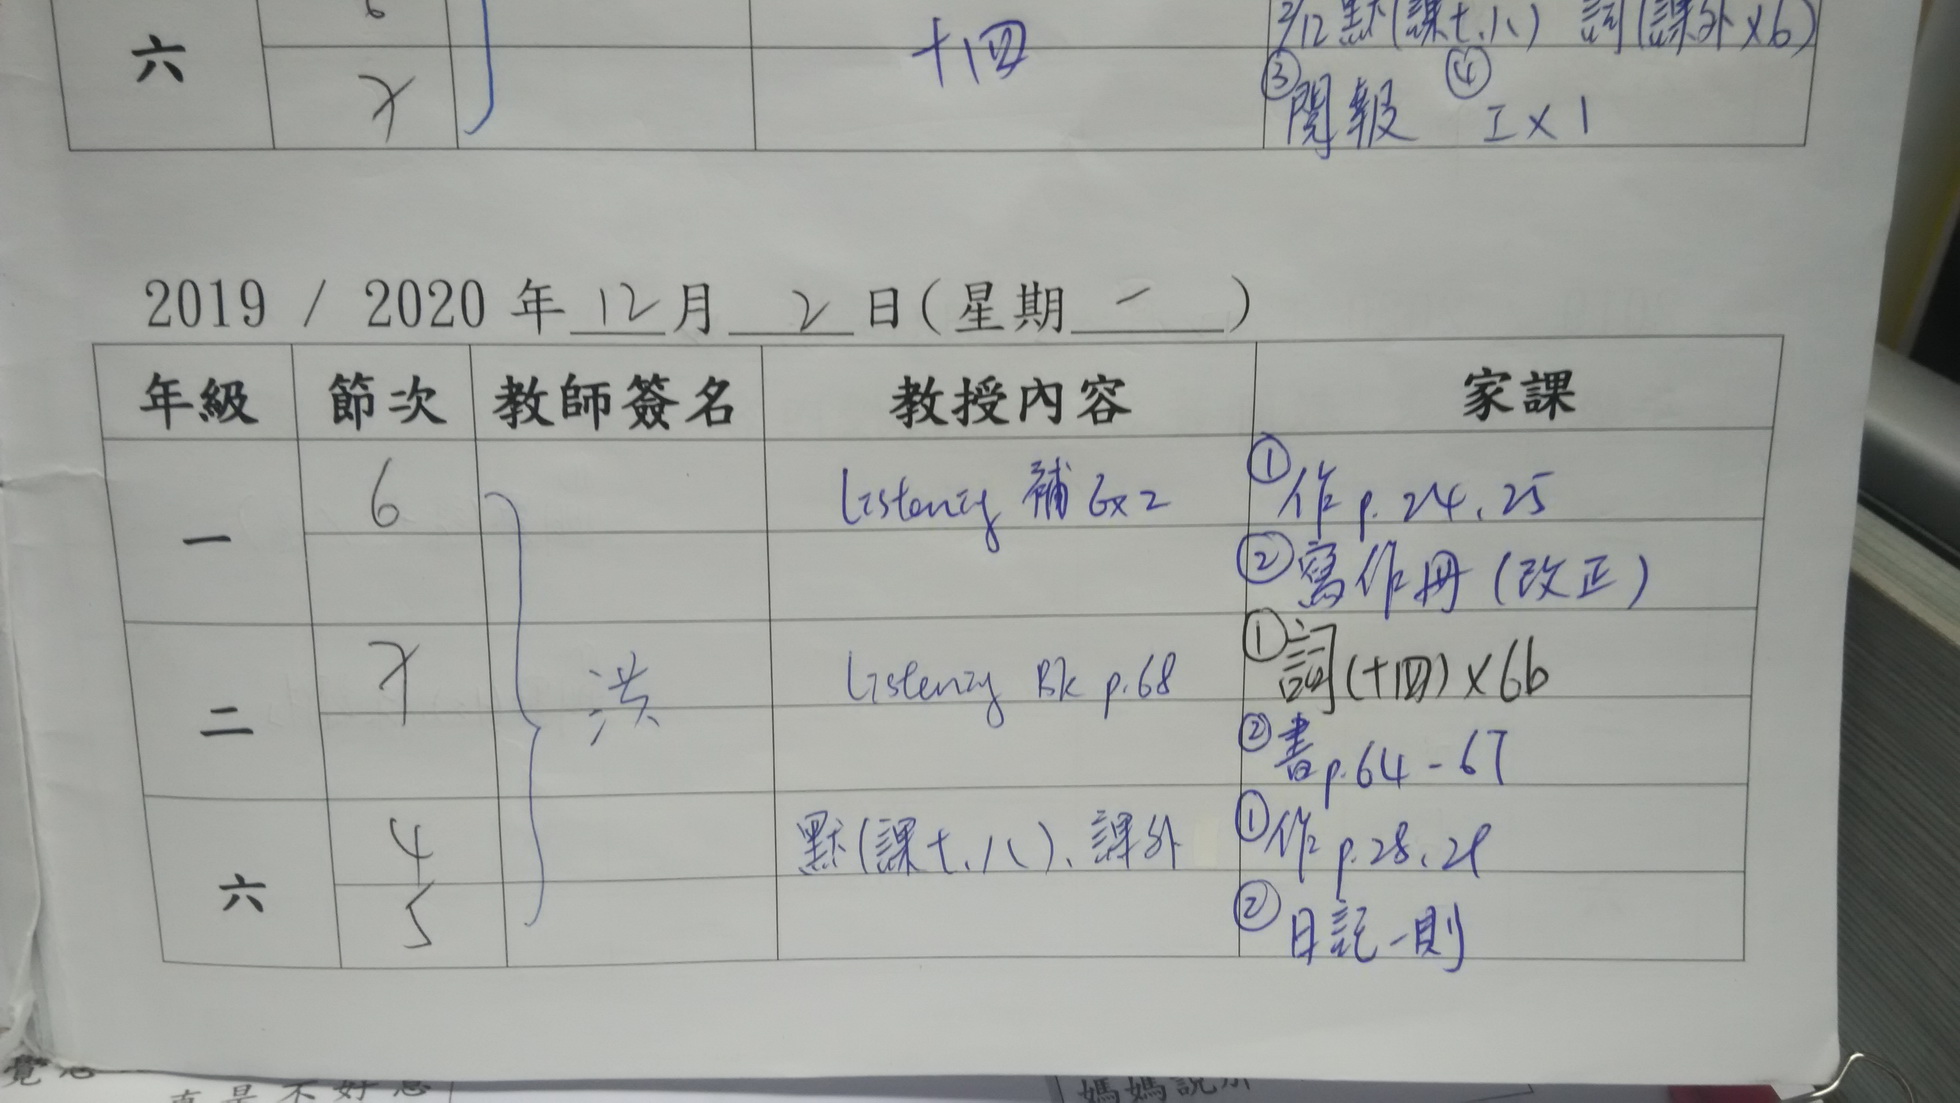 2/12 默(課七.八) 詞(課外x6)
六
7
十四
③閱報 ④工x1
2019 / 2020 年 12 月 2 日(星期 一 )
年級 節次 教師簽名 教授內容 家課
一 6 Listening 補 Ex 2 ①作 p. 24, 25
②寫作冊 (改正)
二 7 洪 Listening Bk p.68 ①詞(十四)x6b
②書p.64-67
六 4 默(課七.八)、課外 ①作 p.28, 29
5 ②日記一則
真是不好意
媽媽說